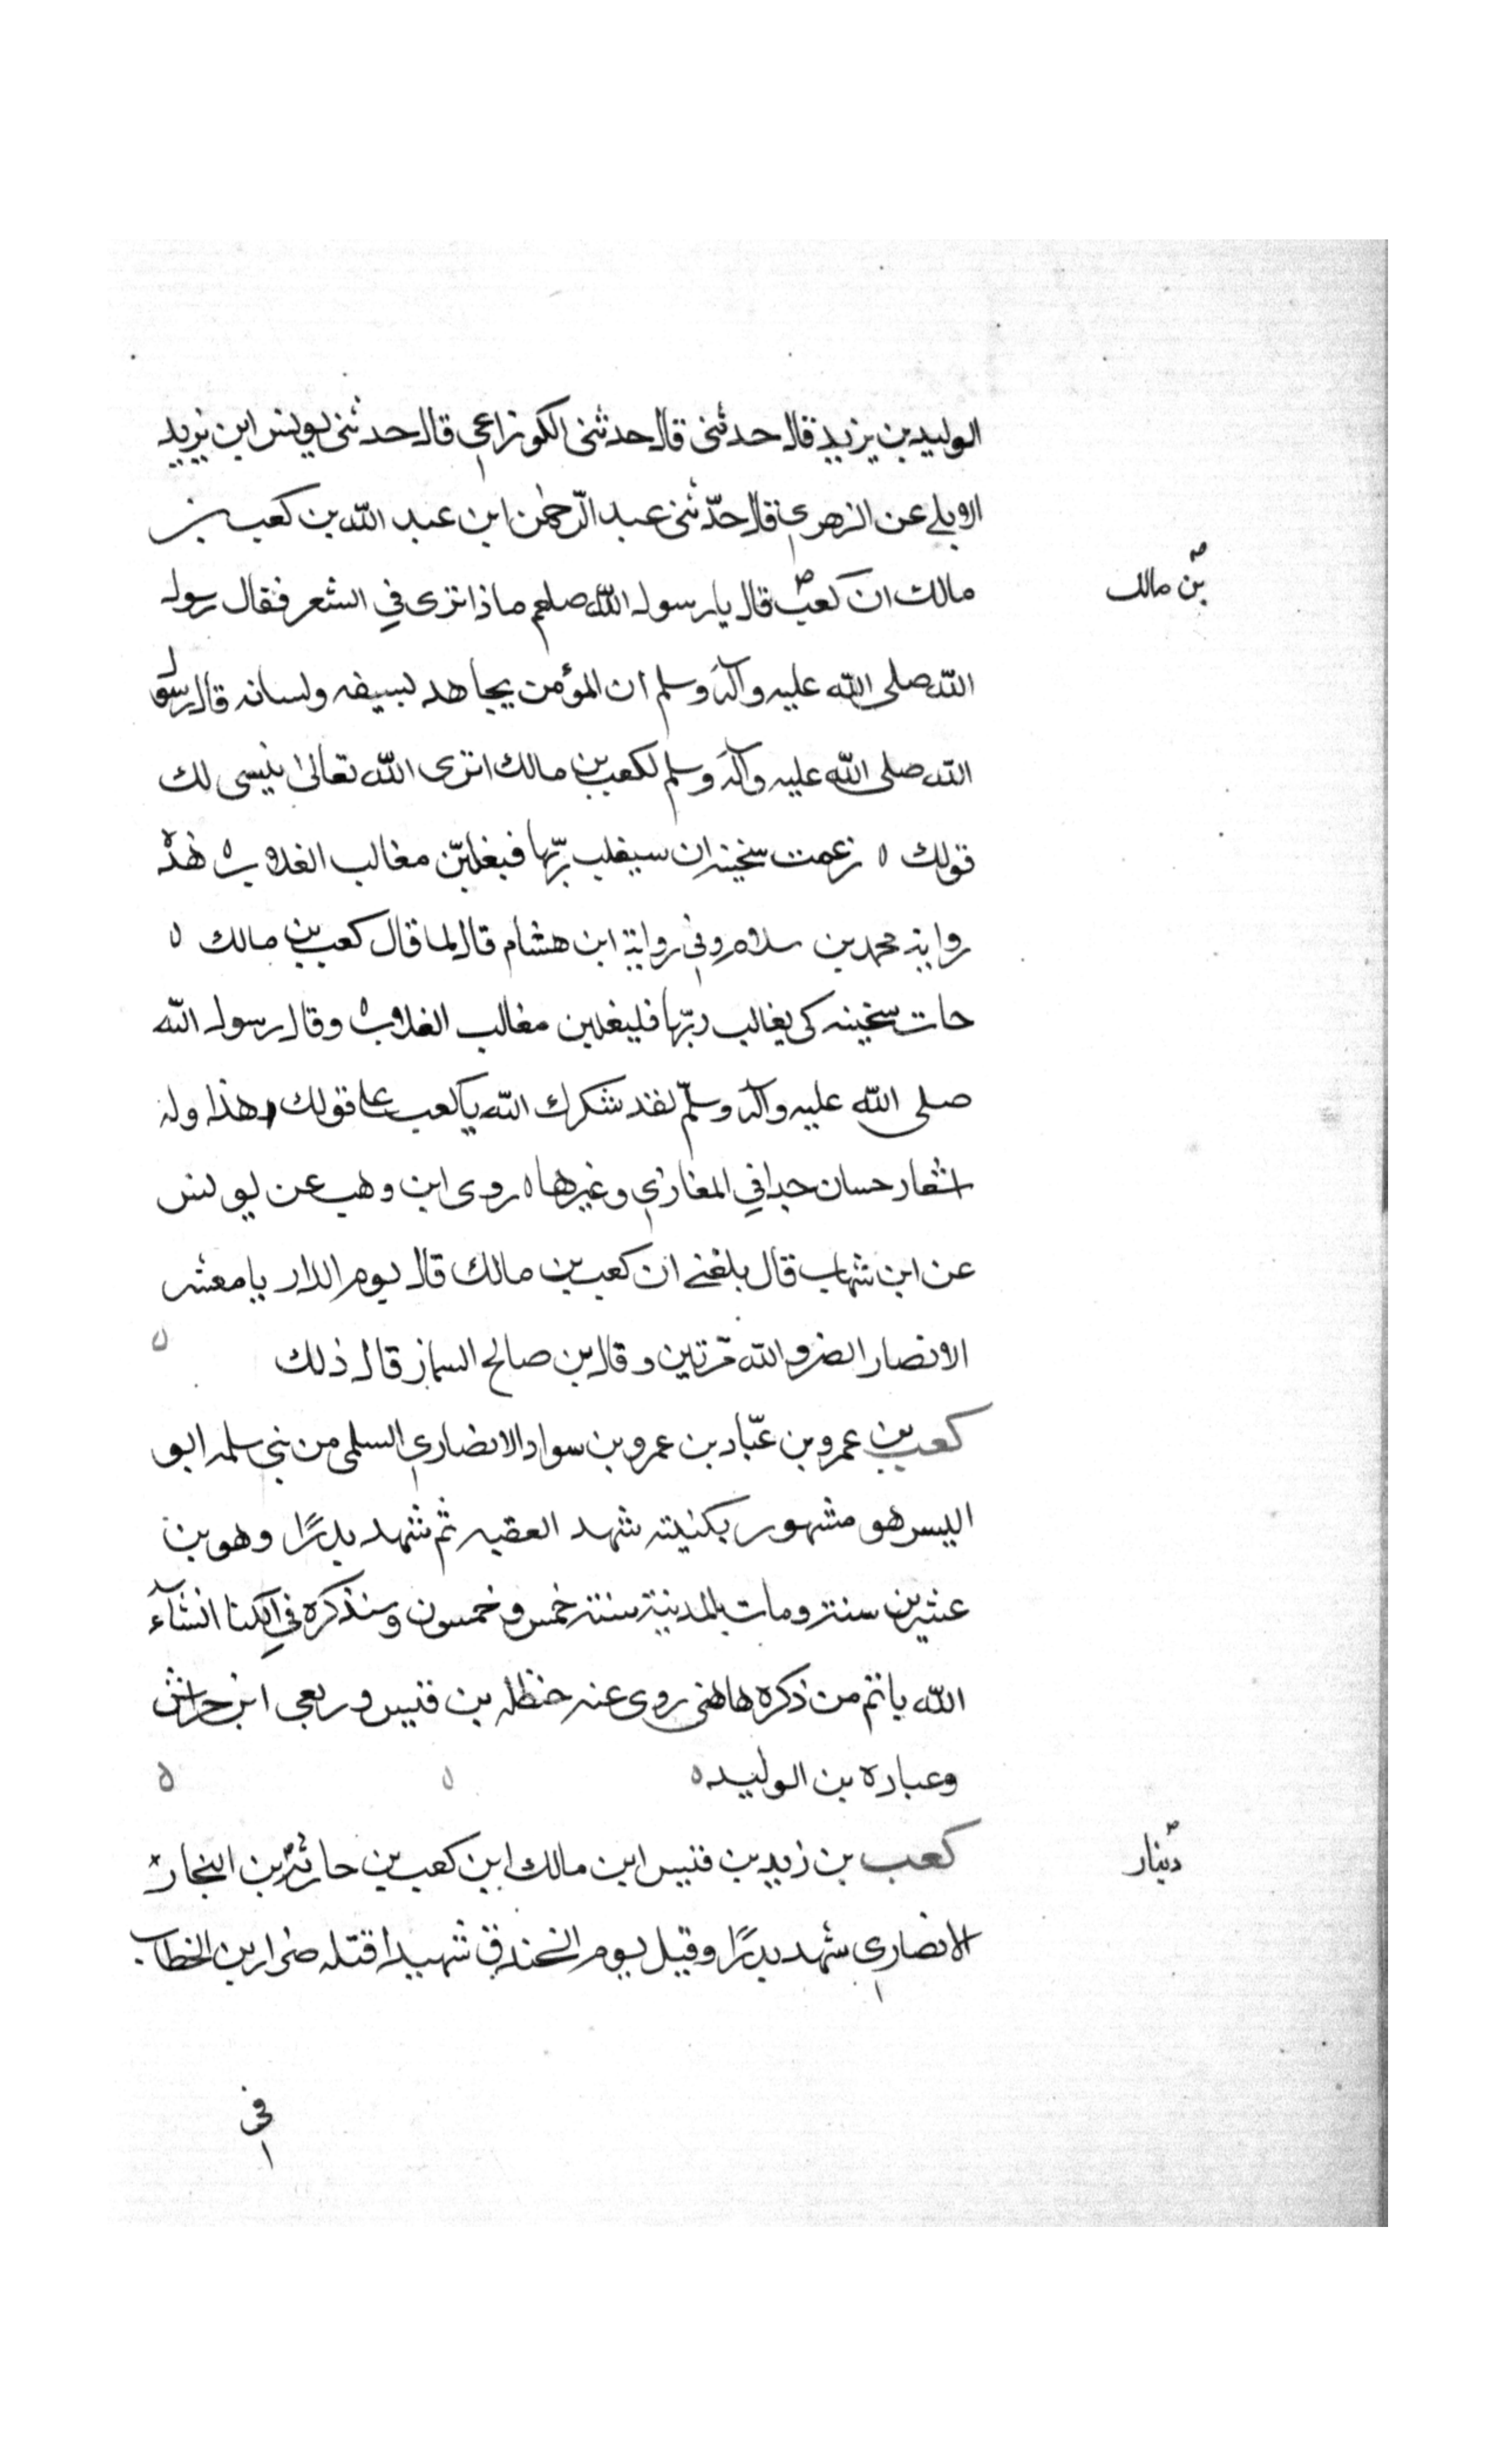 الوليد بن يزيد قال حدثني قال حدثني الكوزاعي قال حدثني يونس ابن يزيد
الايلي عن الزهري قال حدّثني عبد الرّحمن ابن عبد الله بن كعب بن
مالك ان كعب قال يا رسول الله صلعم ماذا ترى في الشعر فقال رسول
بن مالك
الله صلى الله عليه وآله وسلم ان المؤمن يجاهد بسيفه ولسانه قال رسول
الله صلى الله عليه وآله وسلم لكعب بن مالك اترى الله تعالى ينسى لك
قولك ه زعمت سخينه ان سيغلب ربّها فيغلبنّ مغالب الغلاب ه هذه
رواية محمد بن سلام وفي رواية ابن هشام قال لما قال كعب بن مالك ه
جات سخينه كي يغالب ربّها فليغلبن مغالب الغلاب ه وقال رسول الله
صلى الله عليه وآله وسلّم لقد شكرك الله يا كعب على قولك هذا وله
اشعار حسان جدا في المغازي وغيرها ه روى ابن وهب عن يونس
عن ابن شهاب قال بلغني ان كعب بن مالك قال يوم الدار يا معشر
الانصار انصروا الله مرّتين وقال بن صالح السمان قال ذلك ه
كعب بن عمرو بن عبّاد بن عمرو بن سواد الانصاري السلمى من بني سلمه ابو
اليسر هو مشهور بكنيته شهد العقبه ثم شهد بدرًا وهو بن
عشرين سنة ومات بالمدينة سنة خمس و خمسون وسنذكره في الكنا انشآء
الله باتم من ذكره هاهنى روى عنه حنظله بن قيس وربعي ابن حراش
وعباده بن الوليد ه ه ه
كعب بن زيد بن قيس ابن مالك ابن كعب بن حارثه بن النجار
دينار
الانصاري شهد بدرًا وقيل يوم الخندق شهيدا قتله ضرار بن الخطاب
في